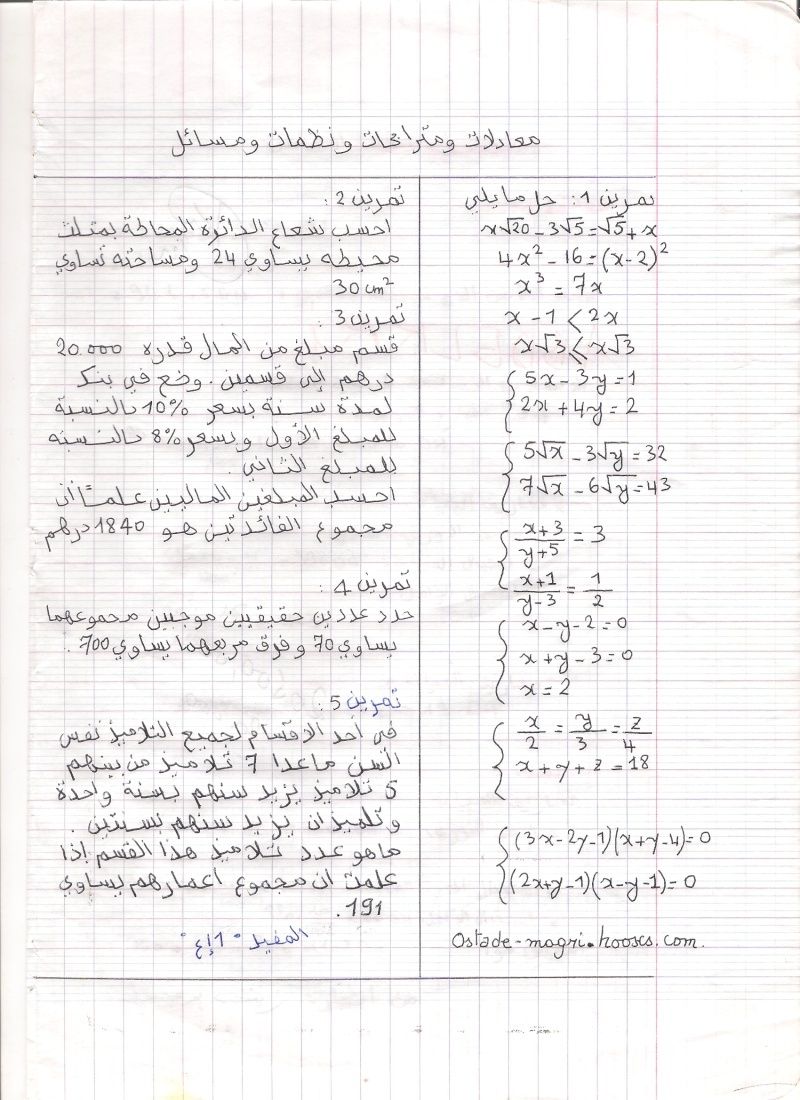 معادلات ومتراجحات ونظمات ومسائل
تمرين 1: حل مايلي
x√20 - 3√5 = √5 + x
4x² - 16 = (x-2)²
x³ = 7x
x - 1 < 2x
x√3 ⩽ x√3
{ 5x - 3y = 1
2x + 4y = 2
{ 5√x - 3√y = 32
7√x - 6√y = 43
{ (x+3)/(y+5) = 3
(x+1)/(y-3) = 1/2
{ x - y - 2 = 0
x + y - 3 = 0
x = 2
{ x/2 = y/3 = z/4
x + y + z = 18
{ (3x-2y-1)(x+y-4)=0
(2x+y-1)(x-y-1)=0
Ostade-mogri.hooscs.com.
تمرين 2:
احسب شعاع الدائرة المحاطة بمثلث
محيطه يساوي 24 ومساحته تساوي
30 cm²
تمرين 3:
قسم مبلغ من المال قدره 20.000
درهم إلى قسمين. وضع في بنك
لمدة سنة بسعر 10% بالنسبة
للمبلغ الأول وبسعر 8% بالنسبة
للمبلغ الثاني.
احسب المبلغين الماليين علماً أن
مجموع الفائدتين هو 1840 درهم
تمرين 4:
حدد عددين حقيقيين موجبين مجموعهما
يساوي 70 و فرق مربعهما يساوي 700.
تمرين 5:
في أحد الاقسام لجميع التلاميذ نفس
السن ماعدا 7 تلاميذ من بينهم
5 تلاميذ يزيد سنهم بسنة واحدة
وتلميذان يزيد سنهم بسنتين.
ماهو عدد تلاميذ هذا القسم إذا
علمت أن مجموع أعمارهم يساوي
191.
المفيد "1إع"